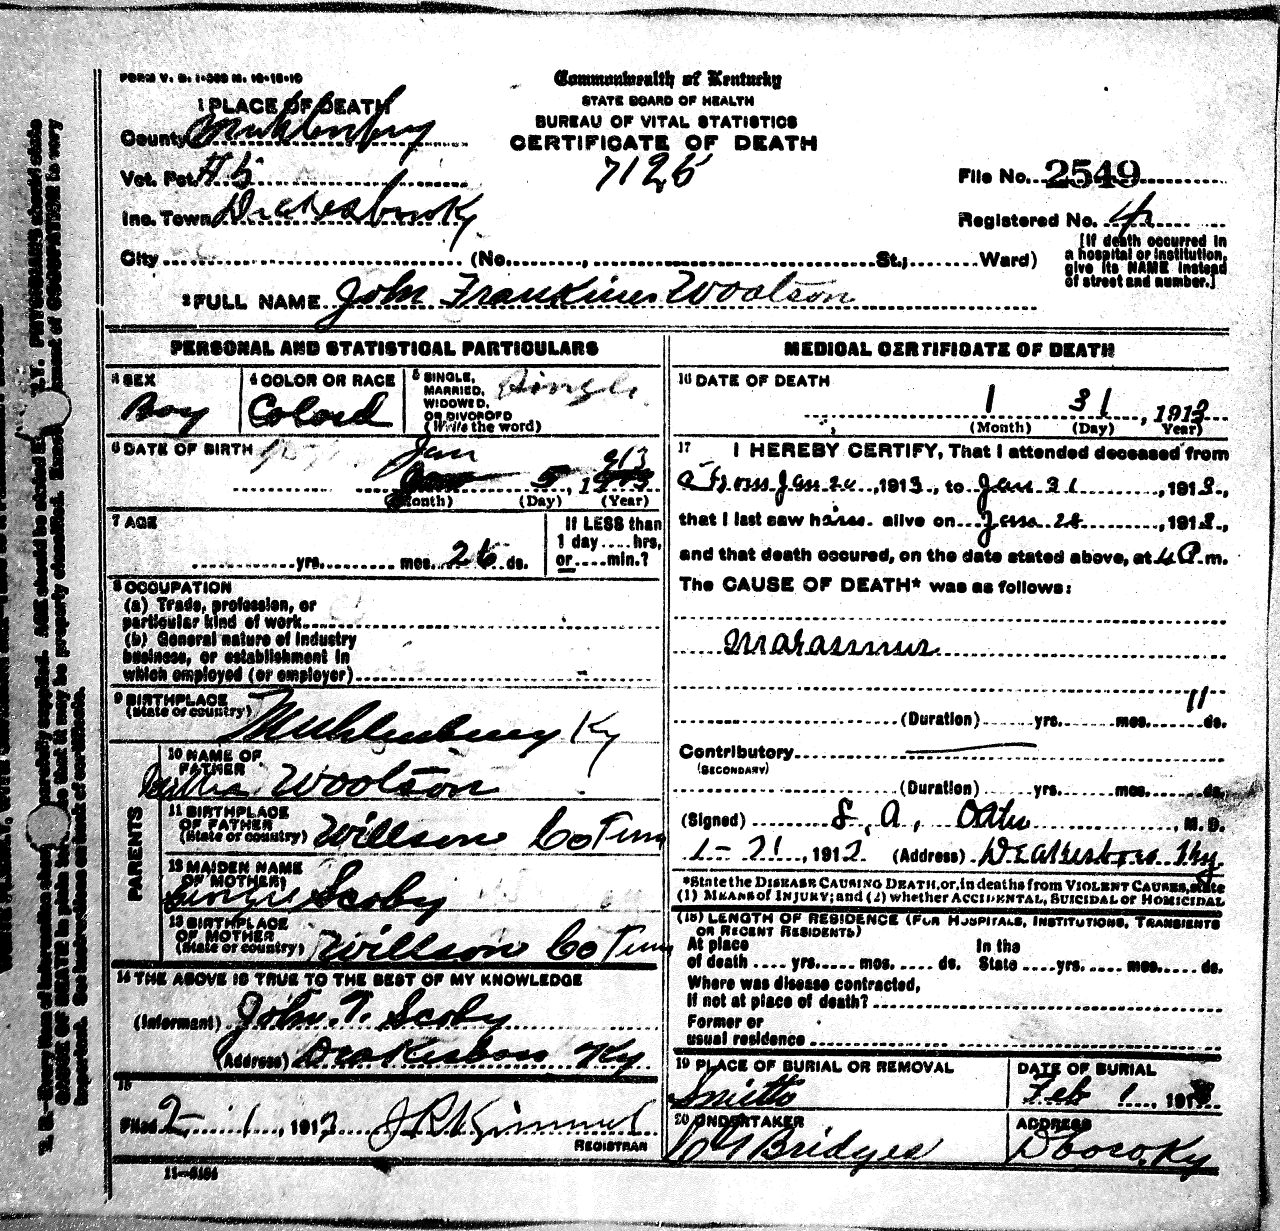 FORM V. S. 1-
Commonwealth of Kentucky
STATE BOARD OF HEALTH
BUREAU OF VITAL STATISTICS
CERTIFICATE OF DEATH
1 PLACE OF DEATH
County Muhlenberg
Vot. Pct.
7125
File No. 2549
Inc. Town Drakesboro Ky
Registered No. 4
City (No. , St.; Ward)
[If death occurred in
a hospital or institution,
give its NAME instead
of street and number.]
2 FULL NAME John Woolson
PERSONAL AND STATISTICAL PARTICULARS
3 SEX
Boy
4 COLOR OR RACE
Colord
5 SINGLE,
MARRIED,
WIDOWED,
OR DIVORCED
(Write the word)
Single
6 DATE OF BIRTH
Jan 5, 1913
(Month) (Day) (Year)
7 AGE
yrs. mos. 26 ds.
If LESS than
1 day hrs,
or min.?
8 OCCUPATION
(a) Trade, profession, or
particular kind of work
(b) General nature of industry
business, or establishment in
which employed (or employer)
9 BIRTHPLACE
(State or country)
Muhlenburg Ky
PARENTS
10 NAME OF
FATHER
Woolson
11 BIRTHPLACE
OF FATHER
(State or country) Willson Co Tenn
12 MAIDEN NAME
OF MOTHER
Scoby
13 BIRTHPLACE
OF MOTHER
(State or country) Willson Co Tenn
14 THE ABOVE IS TRUE TO THE BEST OF MY KNOWLEDGE
(Informant) John. T. Scoby
(Address) Drakesboro Ky
15
Filed 2-1, 1913 J P Kimmel
REGISTRAR
11-
MEDICAL CERTIFICATE OF DEATH
16 DATE OF DEATH
1 31, 1913
(Month) (Day) Year)
17 I HEREBY CERTIFY, That I attended deceased from
From Jan 20, 1913, to Jan 31, 1913,
that I last saw him alive on Jan 28, 1913,
and that death occured, on the date stated above, at 4 P.m.
The CAUSE OF DEATH* was as follows:
Marasmus
(Duration) yrs. mos. 11 ds.
Contributory
(SECONDARY)
(Duration) yrs. mos. ds.
(Signed) S, A, Oates, M. D.
1-31, 1913 (Address) Drakesboro Ky.
*State the DISEASE CAUSING DEATH, or, in deaths from VIOLENT CAUSES, state
(1) MEANS OF INJURY; and (2) whether ACCIDENTAL, SUICIDAL or HOMICIDAL
(18) LENGTH OF RESIDENCE (FOR HOSPITALS, INSTITUTIONS, TRANSIENTS
OR RECENT RESIDENTS)
At place In the
of death yrs. mos. ds. State yrs. mos. ds.
Where was disease contracted,
if not at place of death?
Former or
usual residence
19 PLACE OF BURIAL OR REMOVAL
DATE OF BURIAL
Feb 1, 1913
20 UNDERTAKER
Bridges
ADDRESS
Dboro, Ky